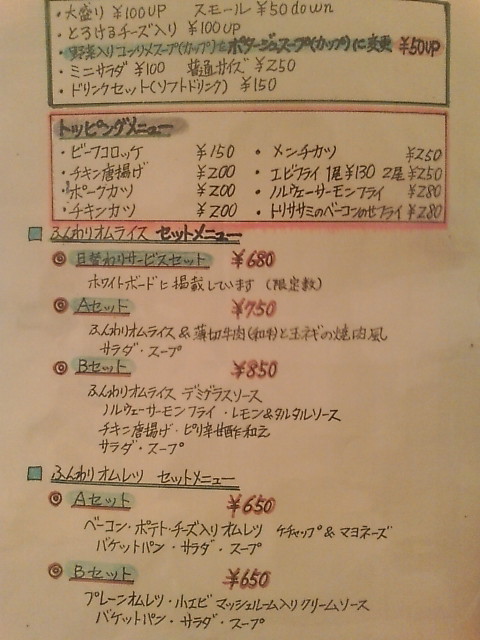 ・大盛り ¥100UP スモール ¥50down
・とろけるチーズ入り ¥100UP
・野菜入りコンソメスープ(カップ)をポタージュスープ(カップ)に変更 ¥50UP
・ミニサラダ ¥100 普通サイズ ¥250
・ドリンクセット(ソフトドリンク) ¥150
トッピングメニュー
・ビーフコロッケ ¥150 ・メンチカツ ¥250
・チキン唐揚げ ¥200 ・エビフライ 1尾¥130 2尾¥250
・ポークカツ ¥200 ・ノルウェーサーモンフライ ¥280
・チキンカツ ¥200 ・トリササミのベーコンのせフライ ¥280
ふんわりオムライス セットメニュー
◎ 日替わりサービスセット ¥680
ホワイトボードに掲載しています (限定数)
◎ Aセット ¥750
ふんわりオムライス & 薄切牛肉(和牛)と玉ネギの焼肉風
サラダ・スープ
◎ Bセット ¥850
ふんわりオムライス デミグラスソース
ノルウェーサーモンフライ・レモン&タルタルソース
チキン唐揚げ・ピリ辛甘酢和え
サラダ・スープ
ふんわりオムレツ セットメニュー
◎ Aセット ¥650
ベーコン・ポテト・チーズ入りオムレツ ケチャップ & マヨネーズ
バケットパン・サラダ・スープ
◎ Bセット ¥650
プレーンオムレツ・小エビ マッシュルーム入りクリームソース
バケットパン・サラダ・スープ